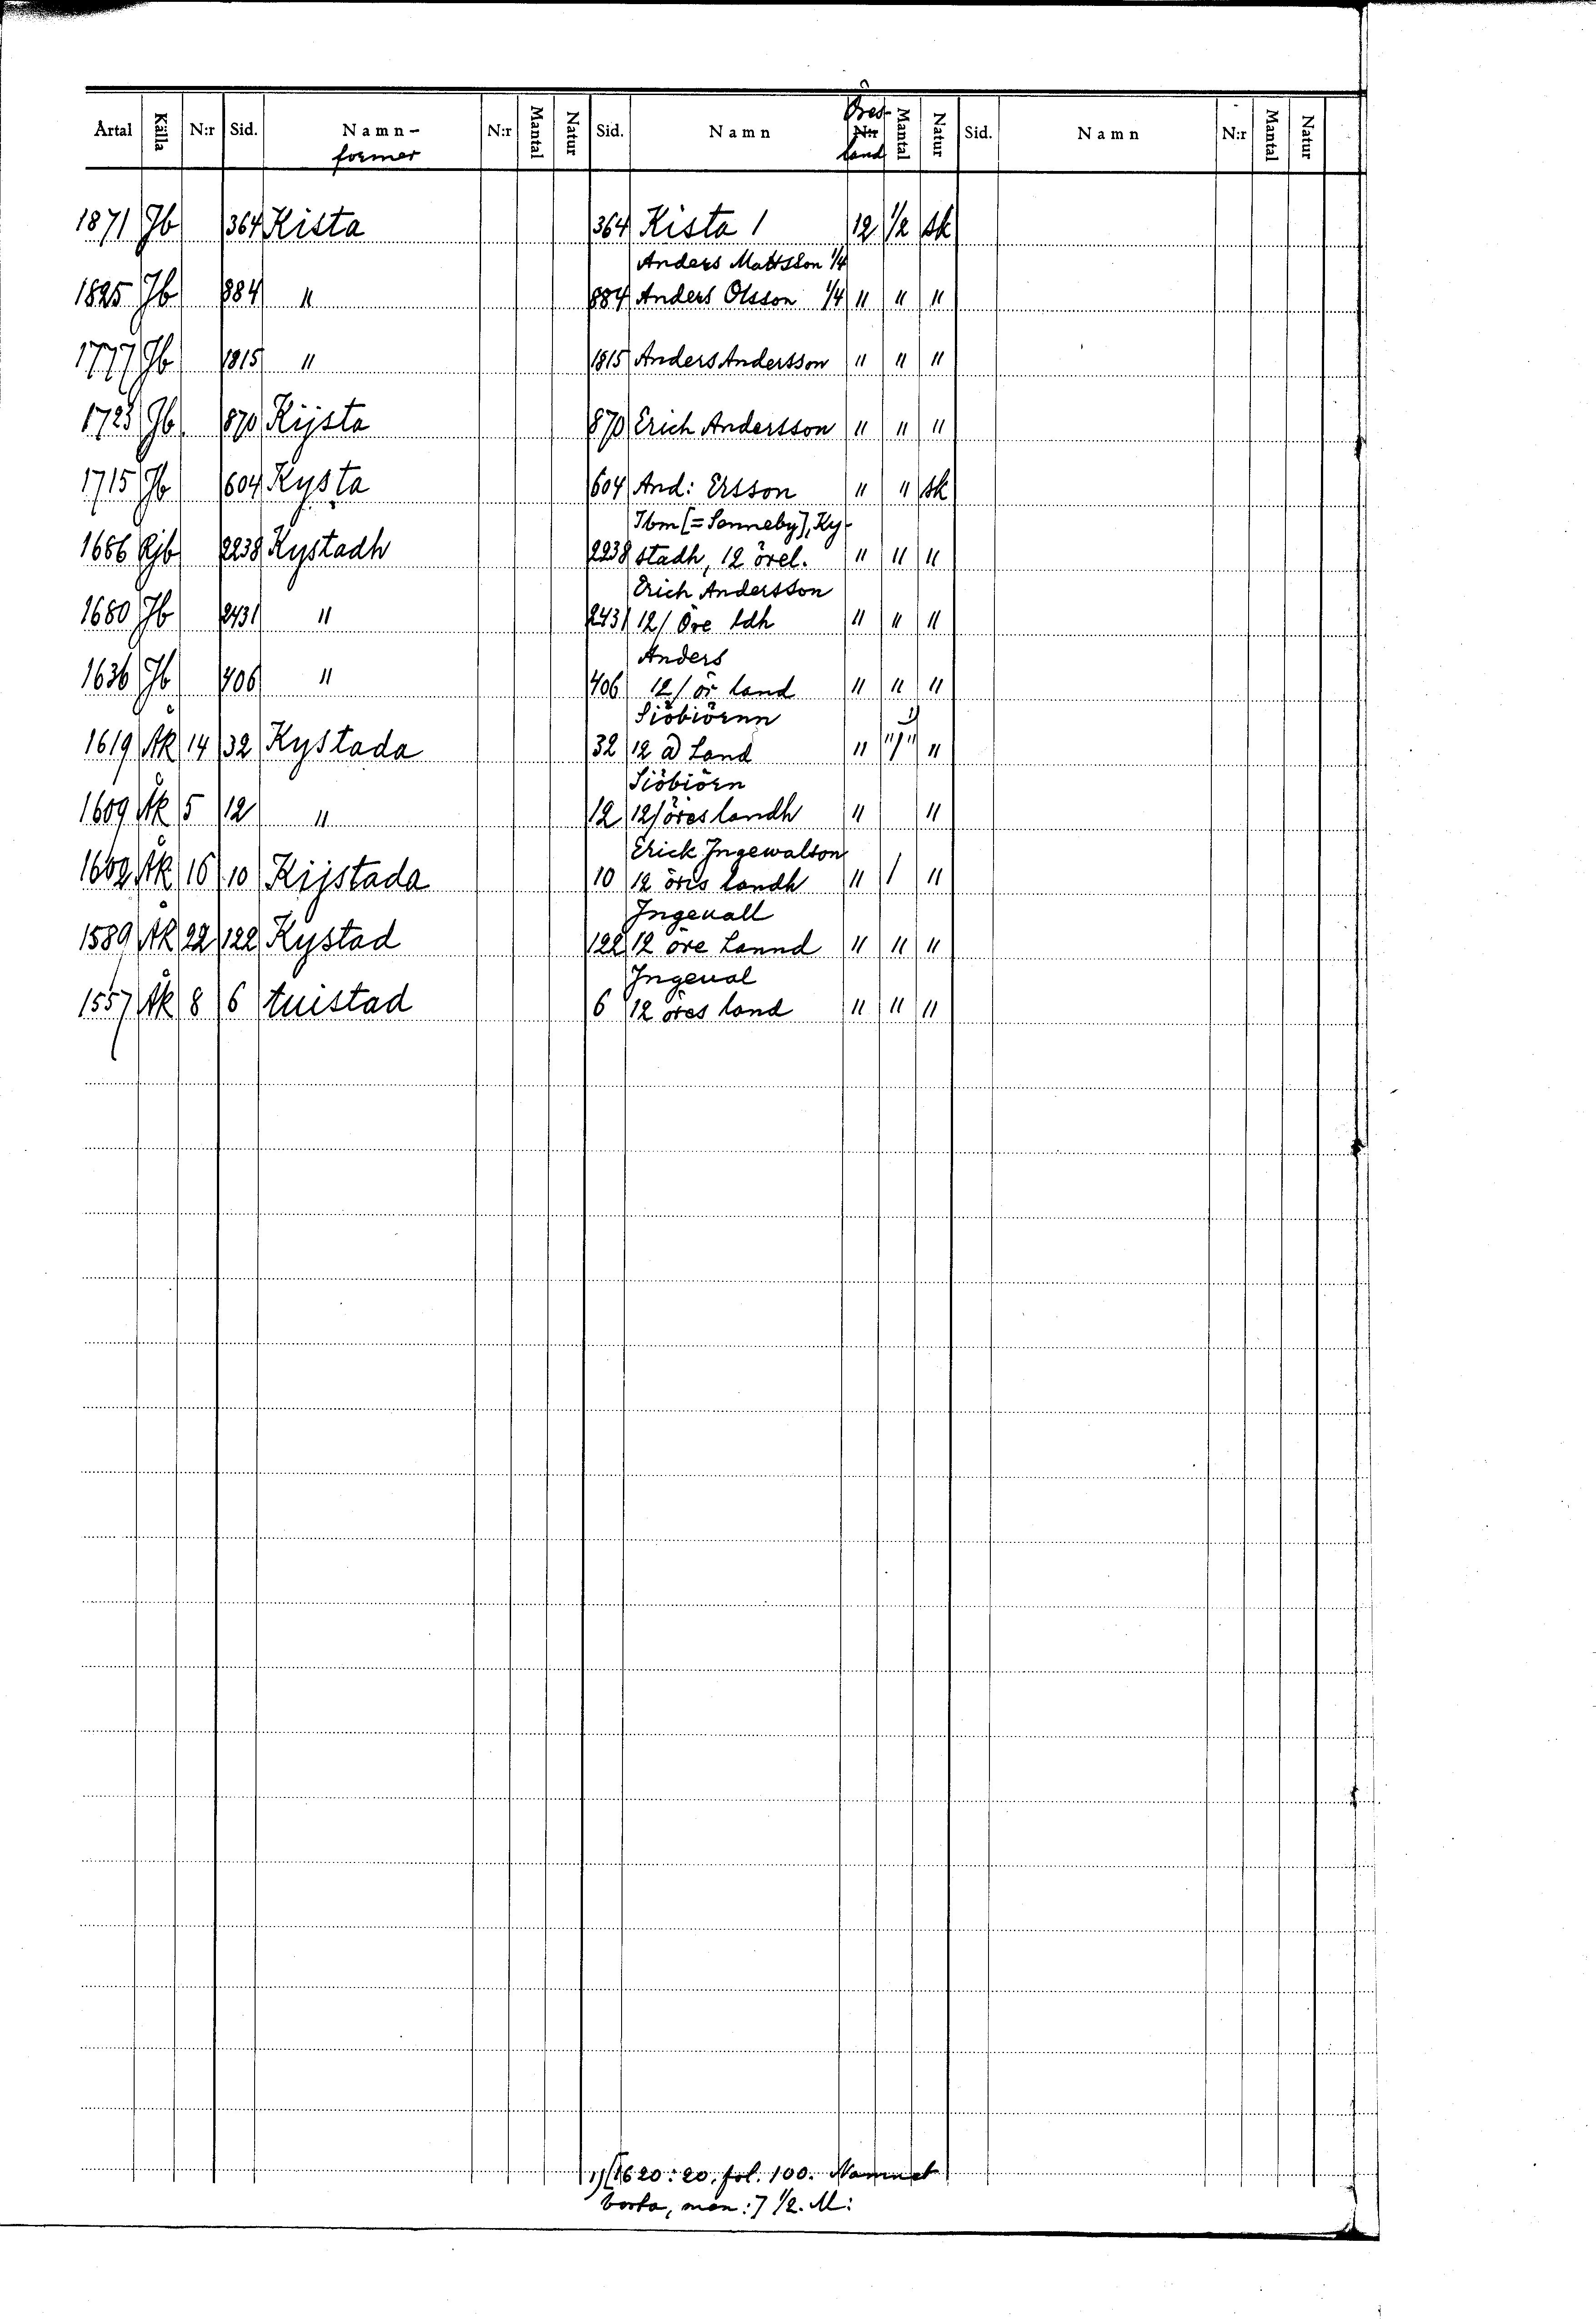 Årtal Källa N:r Sid. Namn- N:r Mantal Natur Sid. Namn Öres- N:r Mantal Natur Sid. Namn N:r Mantal Natur
former land
1871 Jb 364 Kista 364 Kista 1 12 1/2 sk
Anders Mattsson 1/4
1825 Jb 884 " 884 Anders Olsson 1/4 " " "
1777 Jb 1815 " 1815 Anders Andersson " " "
1723 Jb 870 Kijsta 870 Erich Andersson " " "
1715 Jb 604 Kysta 604 And: Ersson " " sk
Ibm [= Senneby], Ky-
1686 Rjb 2238 Kystadh 2238 stadh, 12 örel. " " "
Erich Andersson
1680 Jb 2431 " 2431 12/ Öre ldh " " "
Anders
1636 Jb 406 " 406 12/ ör land " " "
Siöbiörnn 1)
1619 Åk 14 32 Kystada 32 12 Land " "/" "
Siöbiörn
1609 Åk 5 12 " 12 12/ öres landh " "
Erick Jngewalson
1602 Åk 16 10 Kijstada 10 12 öris landh " / "
Jngeuall
1589 Åk 22 122 Kystad 122 12 öre Lannd " " "
Jngeual
1557 Åk 8 6 tuistad 6 12 öres land " " "
1) [1620:20, fol. 100. Namnet
borta, men:] 1/2. M: